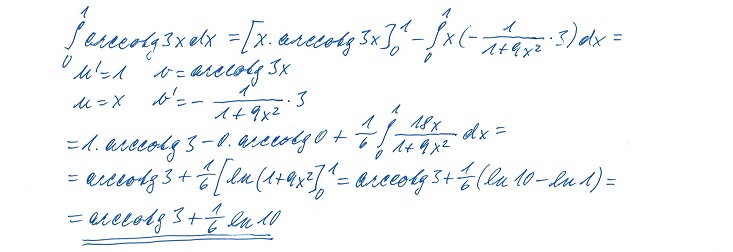 ∫₀¹ arccotg 3x dx = [x . arccotg 3x]₀¹ - ∫₀¹ x(- 1/(1+9x²) · 3) dx =
u' = 1 v = arccotg 3x
u = x v' = - 1/(1+9x²) · 3
= 1. arccotg 3 - 0. arccotg 0 + 1/6 ∫₀¹ 18x/(1+9x²) dx =
= arccotg 3 + 1/6 [ln(1+9x²]₀¹ = arccotg 3 + 1/6 (ln 10 - ln 1) =
= arccotg 3 + 1/6 ln 10